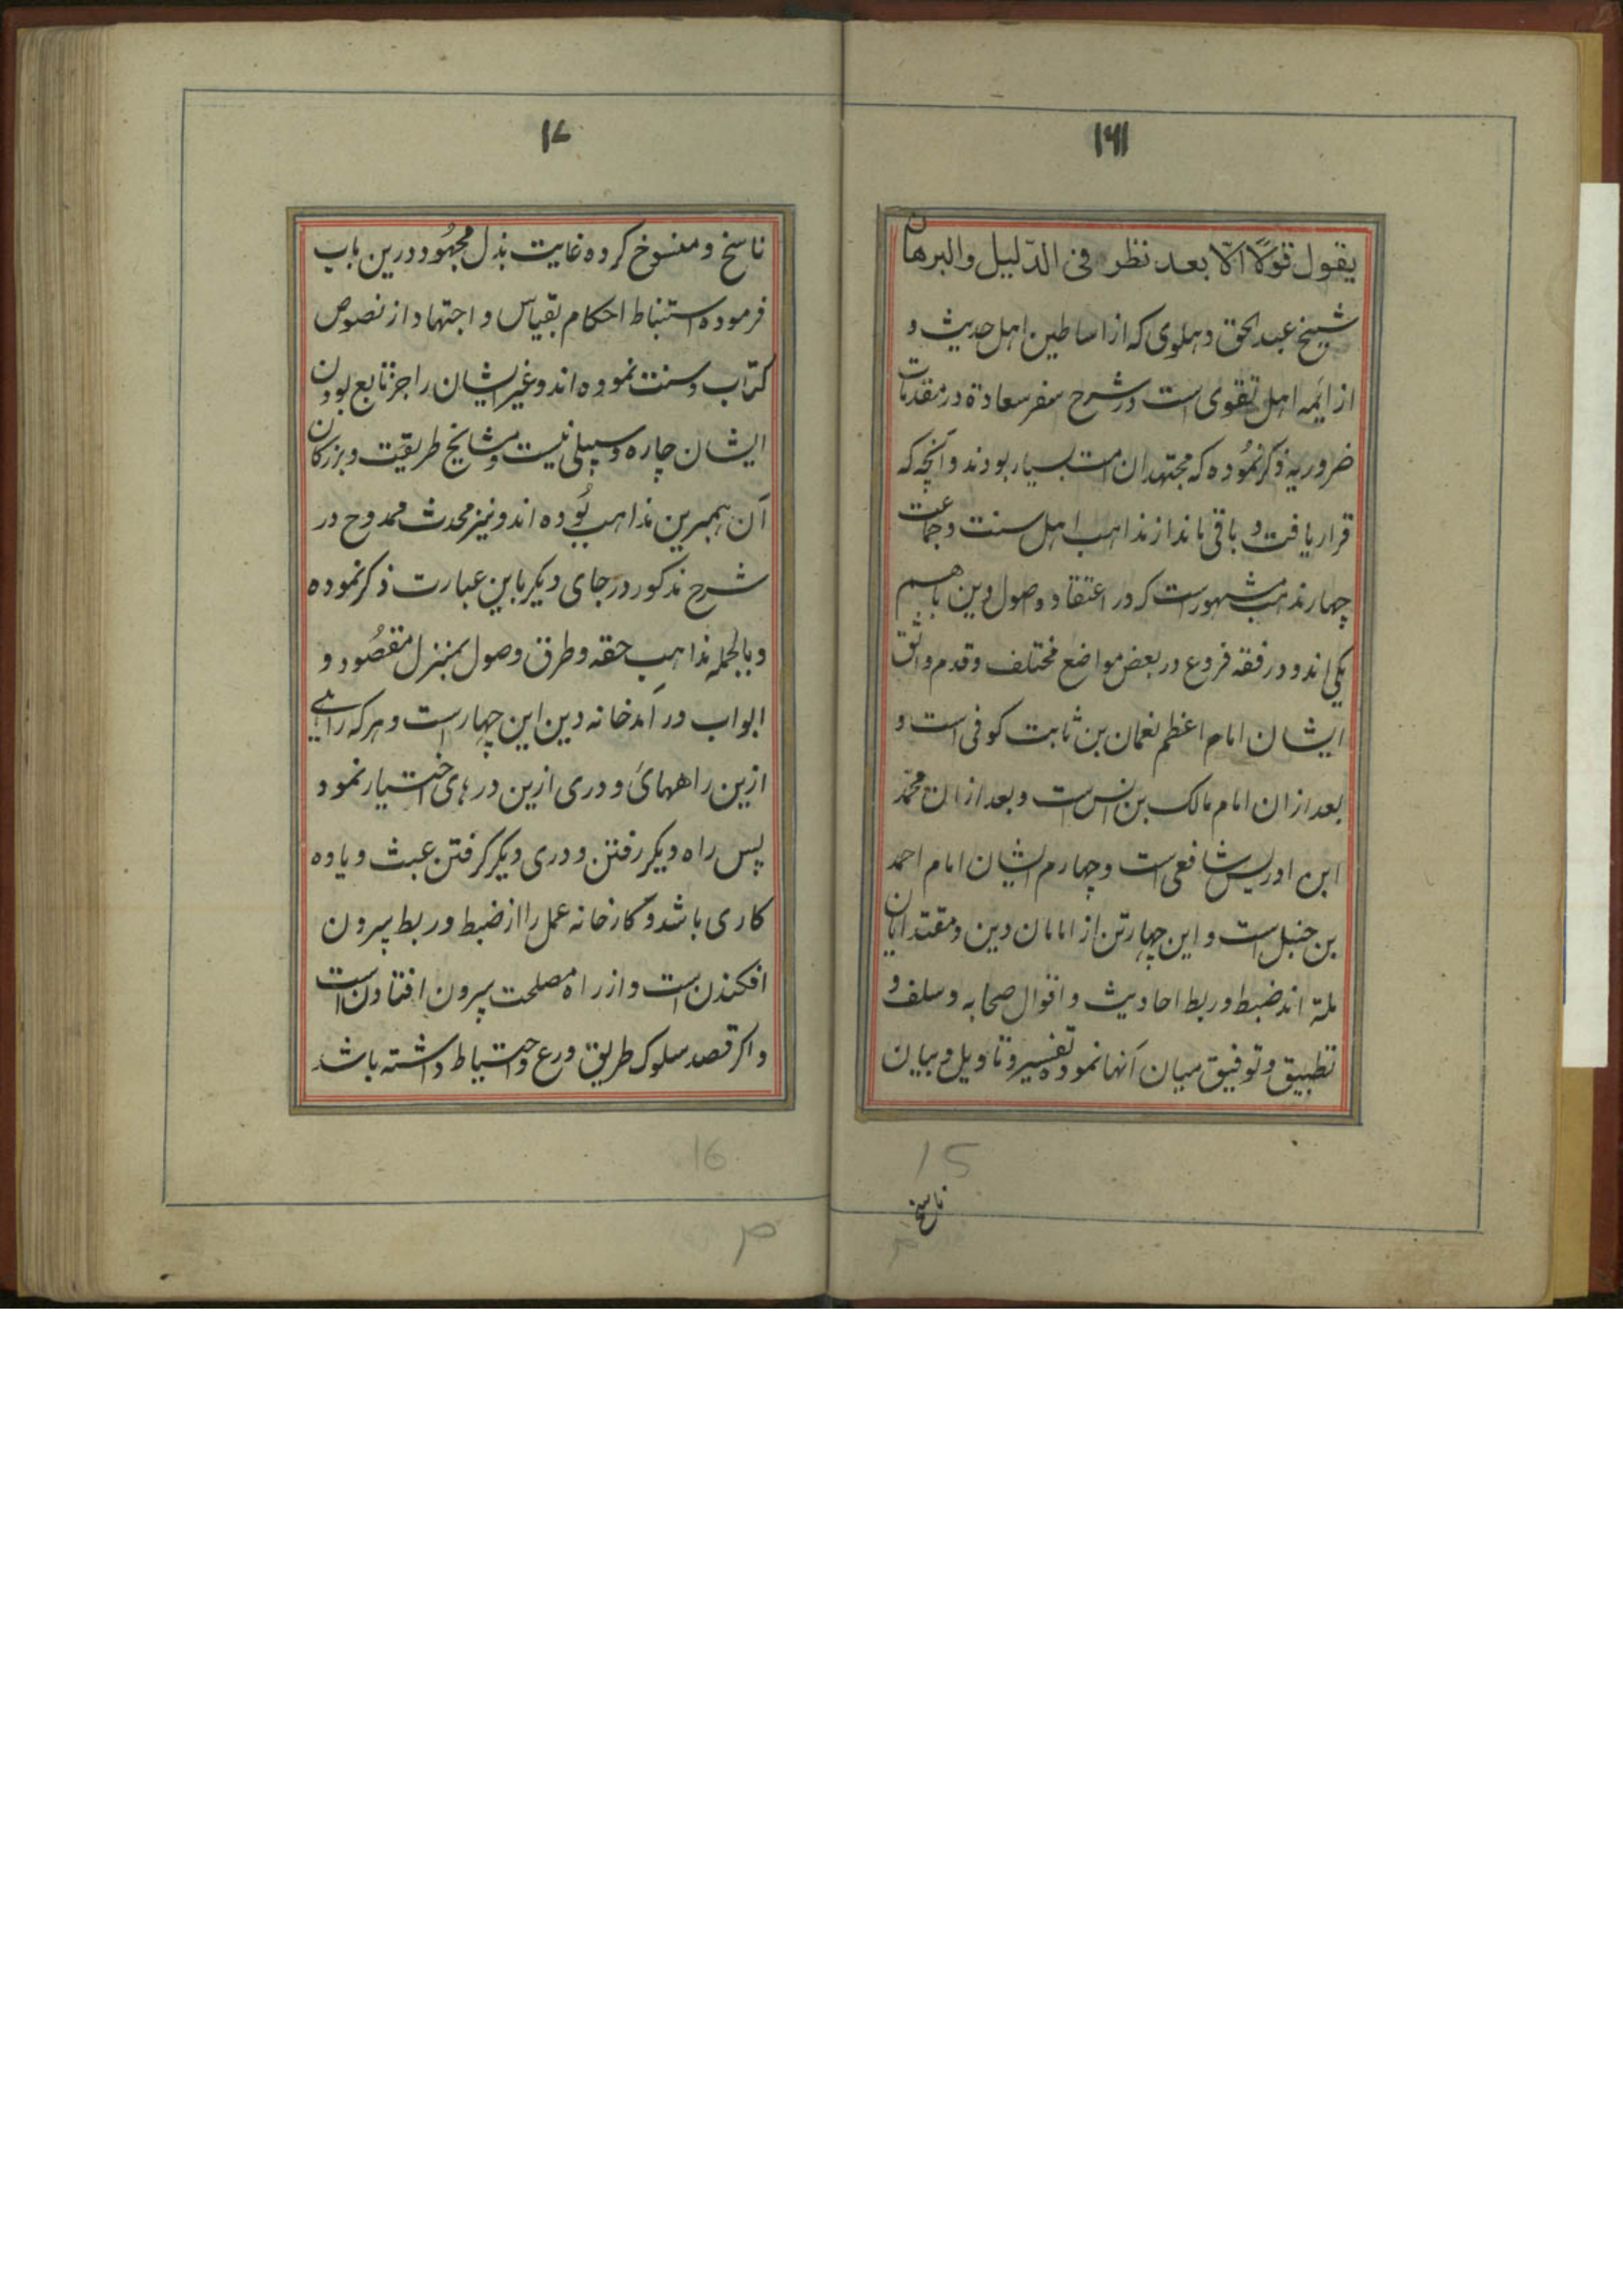 ۱۶
یقول قولًا الّا بعد نظر فی الدّلیل والبرهان
شیخ عبد الحق دهلوی که از اساطین اهل حدیث و
از ائمه اهل تقوی است در شرح سفر سعادة در مقدمات
ضروریه ذکر نموده که مجتهدان امت بسیار بودند و آنچه که
قرار یافت و باقی ماند از مذاهب اهل سنت و جماعت
چهار مذهب مشهور است که در اعتقاد و اصول دین باهم
یکی اند و در فقه فروع در بعض مواضع مختلف و قدم واثق
ایشان امام اعظم نعمان بن ثابت کوفی است و
بعد ازان امام مالک بن انس است و بعد ازان محمّد
ابن ادریس شافعی است و چهارم ایشان امام احمد
بن حنبل است و این چهارتن از امامان دین و مقتدایان
ملة اند ضبط و ربط احادیث و اقوال صحابه و سلف و
تطبیق و توفیق میان آنها نموده تفسیر و تاویل و بیان
15
ناسخ
۱۷
ناسخ و منسوخ کرده غایت بذل مجهُود درین باب
فرموده استنباط احکام بقیاس و اجتهاد از نصوص
کتاب و سنت نموده اند و غیر ایشان را جز تابع بودن
ایشان چاره و سبیلی نیست و مشایخ طریقت و بزرکان
آن همبرین مذاهب بُوده اند و نیز محدث ممدوح در
شرح مذکور در جای دیکر باین عبارت ذکر نموده
و بالجمله مذاهب حقه و طرق وصول بمنزل مقصُود و
ابواب درآمد خانه دین این چهار است و هرکه راهی
ازین راههای و دری ازین درهای اختیار نمود
پس راه دیکر رفتن و دری دیکر کرفتن عبث و یاوه
کاری باشد و کارخانه عمل را از ضبط و ربط بیرون
افکندن است و از راه مصلحت بیرون افتادن است
و اکر قصد سلوک طریق ورع و احتیاط داشته باشد
16
م